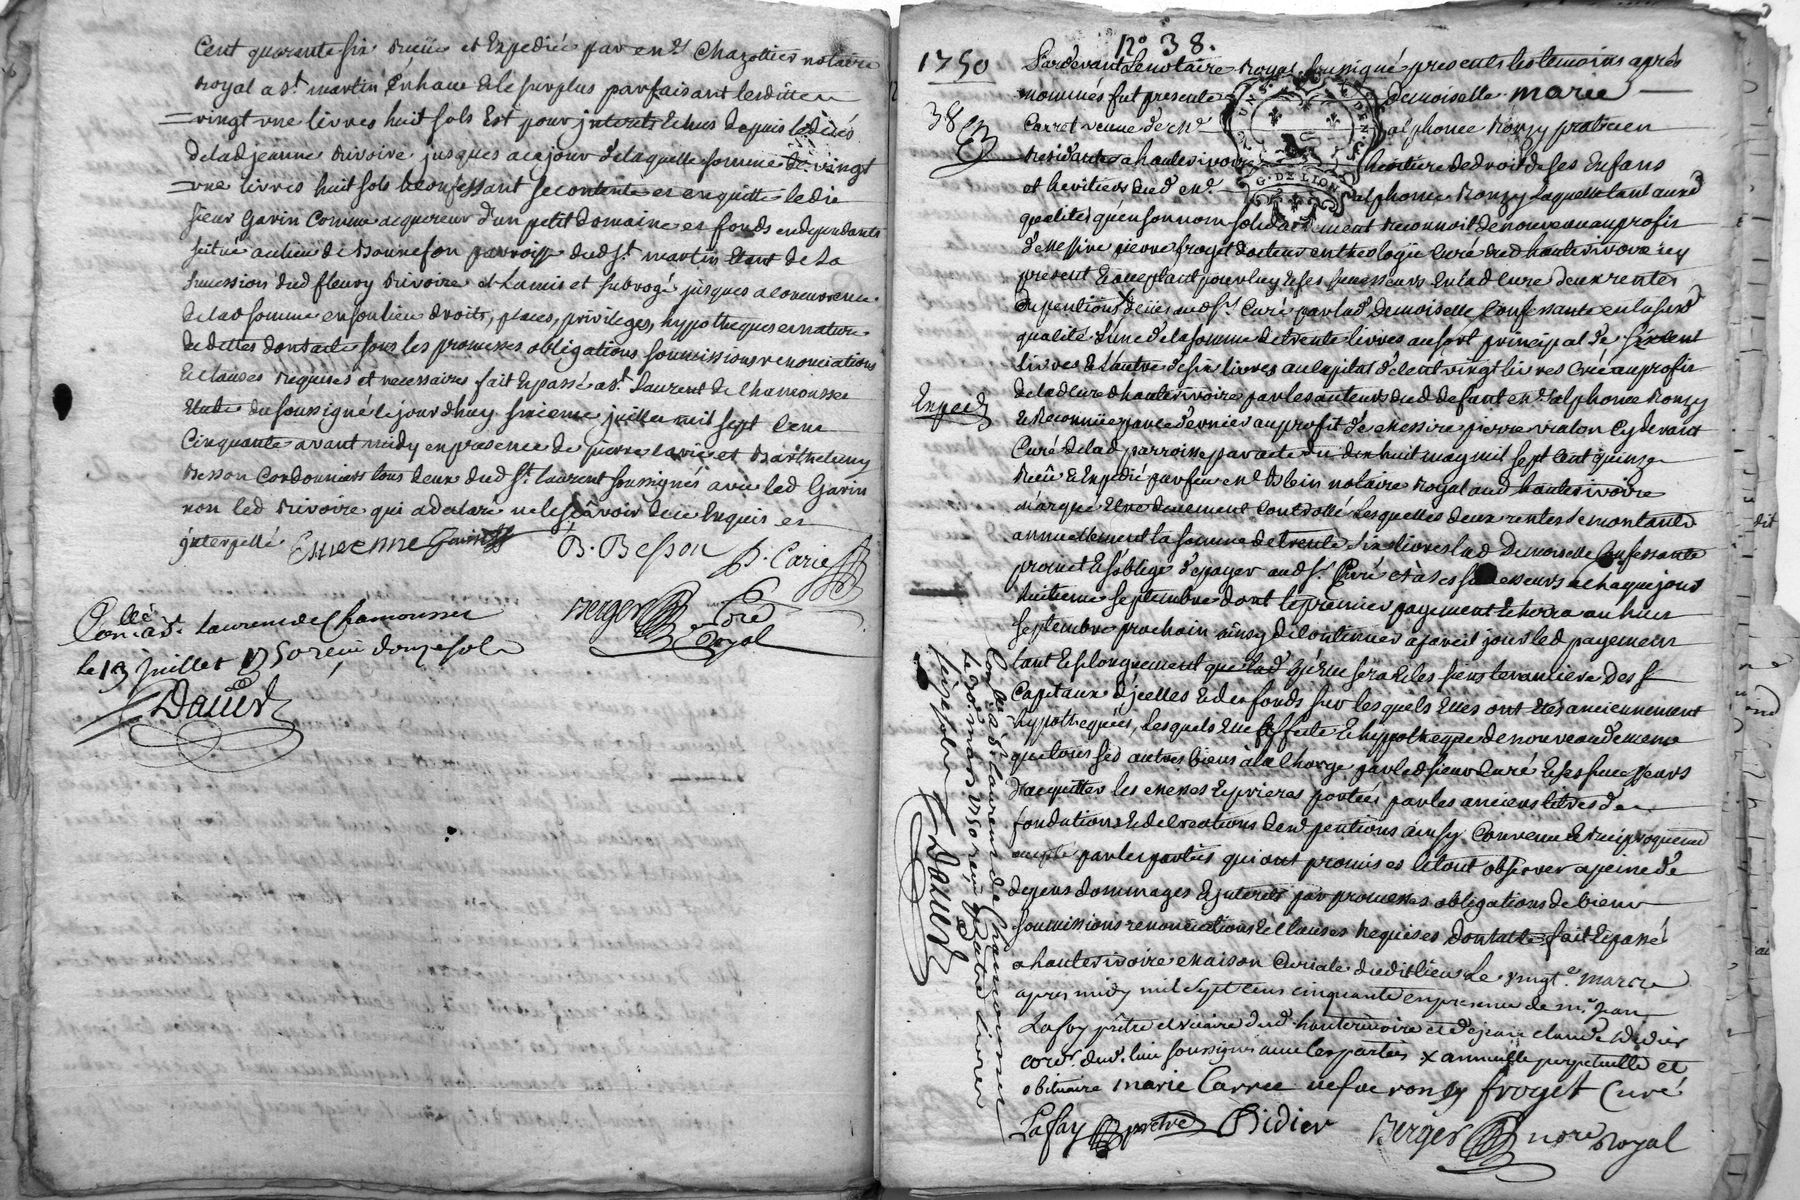 Cent quarente six Reçüe et Expediée par en.d Chazottier notaire
Royal a S.t martin En haut Et le surplus parfaisant lesdittes
vingt une livres huit sols Est pour jnterets Echus depuis le decés
de lad jeanne Rivoire jusques a ce jour de laquelle somme de vingt
une livres huit sols le confessant se contente et en quitte ledit
sieur Gavin Comme acquereur d'un petit domaine et fonds en dependants
situé au lieu de Bonnefon parroisse dud S.t martin Etant de La
succession dud fleury Rivoire et L'a mis et subrogé jusques a concurrence
de lad somme en son lieu droits, places, privileges, hypotheques et nature
de dettes dont acte sous les promesses obligations soumissions renonciations
Et clauses Requises et necessaires fait Et passé a S.t Laurent de Chamousset
Etude du soussigné le jourd'huy sixieme juillet mil sept Cent
Cinquante avant midy en presence de pierre Carie et Barthelemy
Besson Cordonniers tous deux dud S.t Laurent soussignés avec led Gavin
non led Rivoire qui a declaré ne le sçavoir de ce Enquis et
jnterpellé. Estienne Gavin B. Besson P. Carie
Berger no.re Royal
Con.llé a S.t Laurent de Chamousset
le 13 juillet 1750 reçu douze sols
Dauer
n.o 38.
1750
38
Pardevant Le notaire Royal soussigné presents les temoins aprés
nommés fut presente demoiselle marie
Carret veuve de en.d alphonce Ronzy praticien
Residante a hauterivoire heritiere de droit de ses Enfans
et heritiers dud en.d alphonce Ronzy Laquelle tant aux d
qualités qu'en son nom solidairement Reconnoit de nouveau au profit
de messire pierre froget docteur en theologie Curé dud hauterivoire icy
present Et acceptant pour luy Et ses successeurs En lad Cure deux rentes
ou pentions X deües aud S.r Curé par lad Demoiselle Confessante en lasusd
qualité L'une de la somme de trente livres au sort principal de six cent
livres Et L'autre de six livres au Capital de Cent vingt livres Créé au profit
de lad Cure d'hauterivoire par les auteurs dud deffunt en.d alphonce Ronzy
Et Reconnüe par ce dernier au profit de messire pierre vialon Cy devant
Curé de lad parroisse par acte du dix huit may mil sept Cent quinze
Reçû Et Expedié par feu en.d Blein notaire Royal aud hauterivoire
marqué Etre deuement Controllé Lesquelles deux rentes se montants
annuellement la somme de trente six livres lad Demoiselle Confessante
promet Et s'oblige de payer aud S.r Curé et à ses successeurs a chaque jour
huitieme septembre dont le premier payement Echerra au huit
septembre prochain ainsy de Continuer a pareil jour led payement
tant Et si longuement que lad veuve sera Et les siens tenanciere des f
Capitaux d'jcelles Et des fonds sur lesquels Elles ont Etés anciennement
hypothequées, Lesquels Elle affecte Et hypotheque de nouveau de meme
que tous ses autres biens à la Charge par led sieur Curé Et ses successeurs
d'acquitter les messes Et prieres portées par les anciens titres de
fondations Et de Creations desd pentions ainsy Convenu Et Reciproquement
accepté par les parties qui ont promis et le tout observer a peine de
depens dommages Et jnterets par promesses obligations de biens
soumissions renonciations Et Clauses Requises dont acte fait Et passé
a hauterivoire maison Curiale dudit lieu Le vingt.e marce
apres midy mil sept cens cinquante en presence de m.r Jean
Lafay prêtre et vicaire dud. hauterivoire et de jean claude Didier
cord.r dud. lieu soussignés avec les parties x annuelle perpetuelle et
obituaire marie Carree vefve ronzy froget Curé
Lafay prêtre Didier Berger no.re Royal
Exped
Con.llé a S.t Laurent de Chamousset
Le 29 mars 1750 reçu quatre livres
seize sols Dauer
G. DE LION